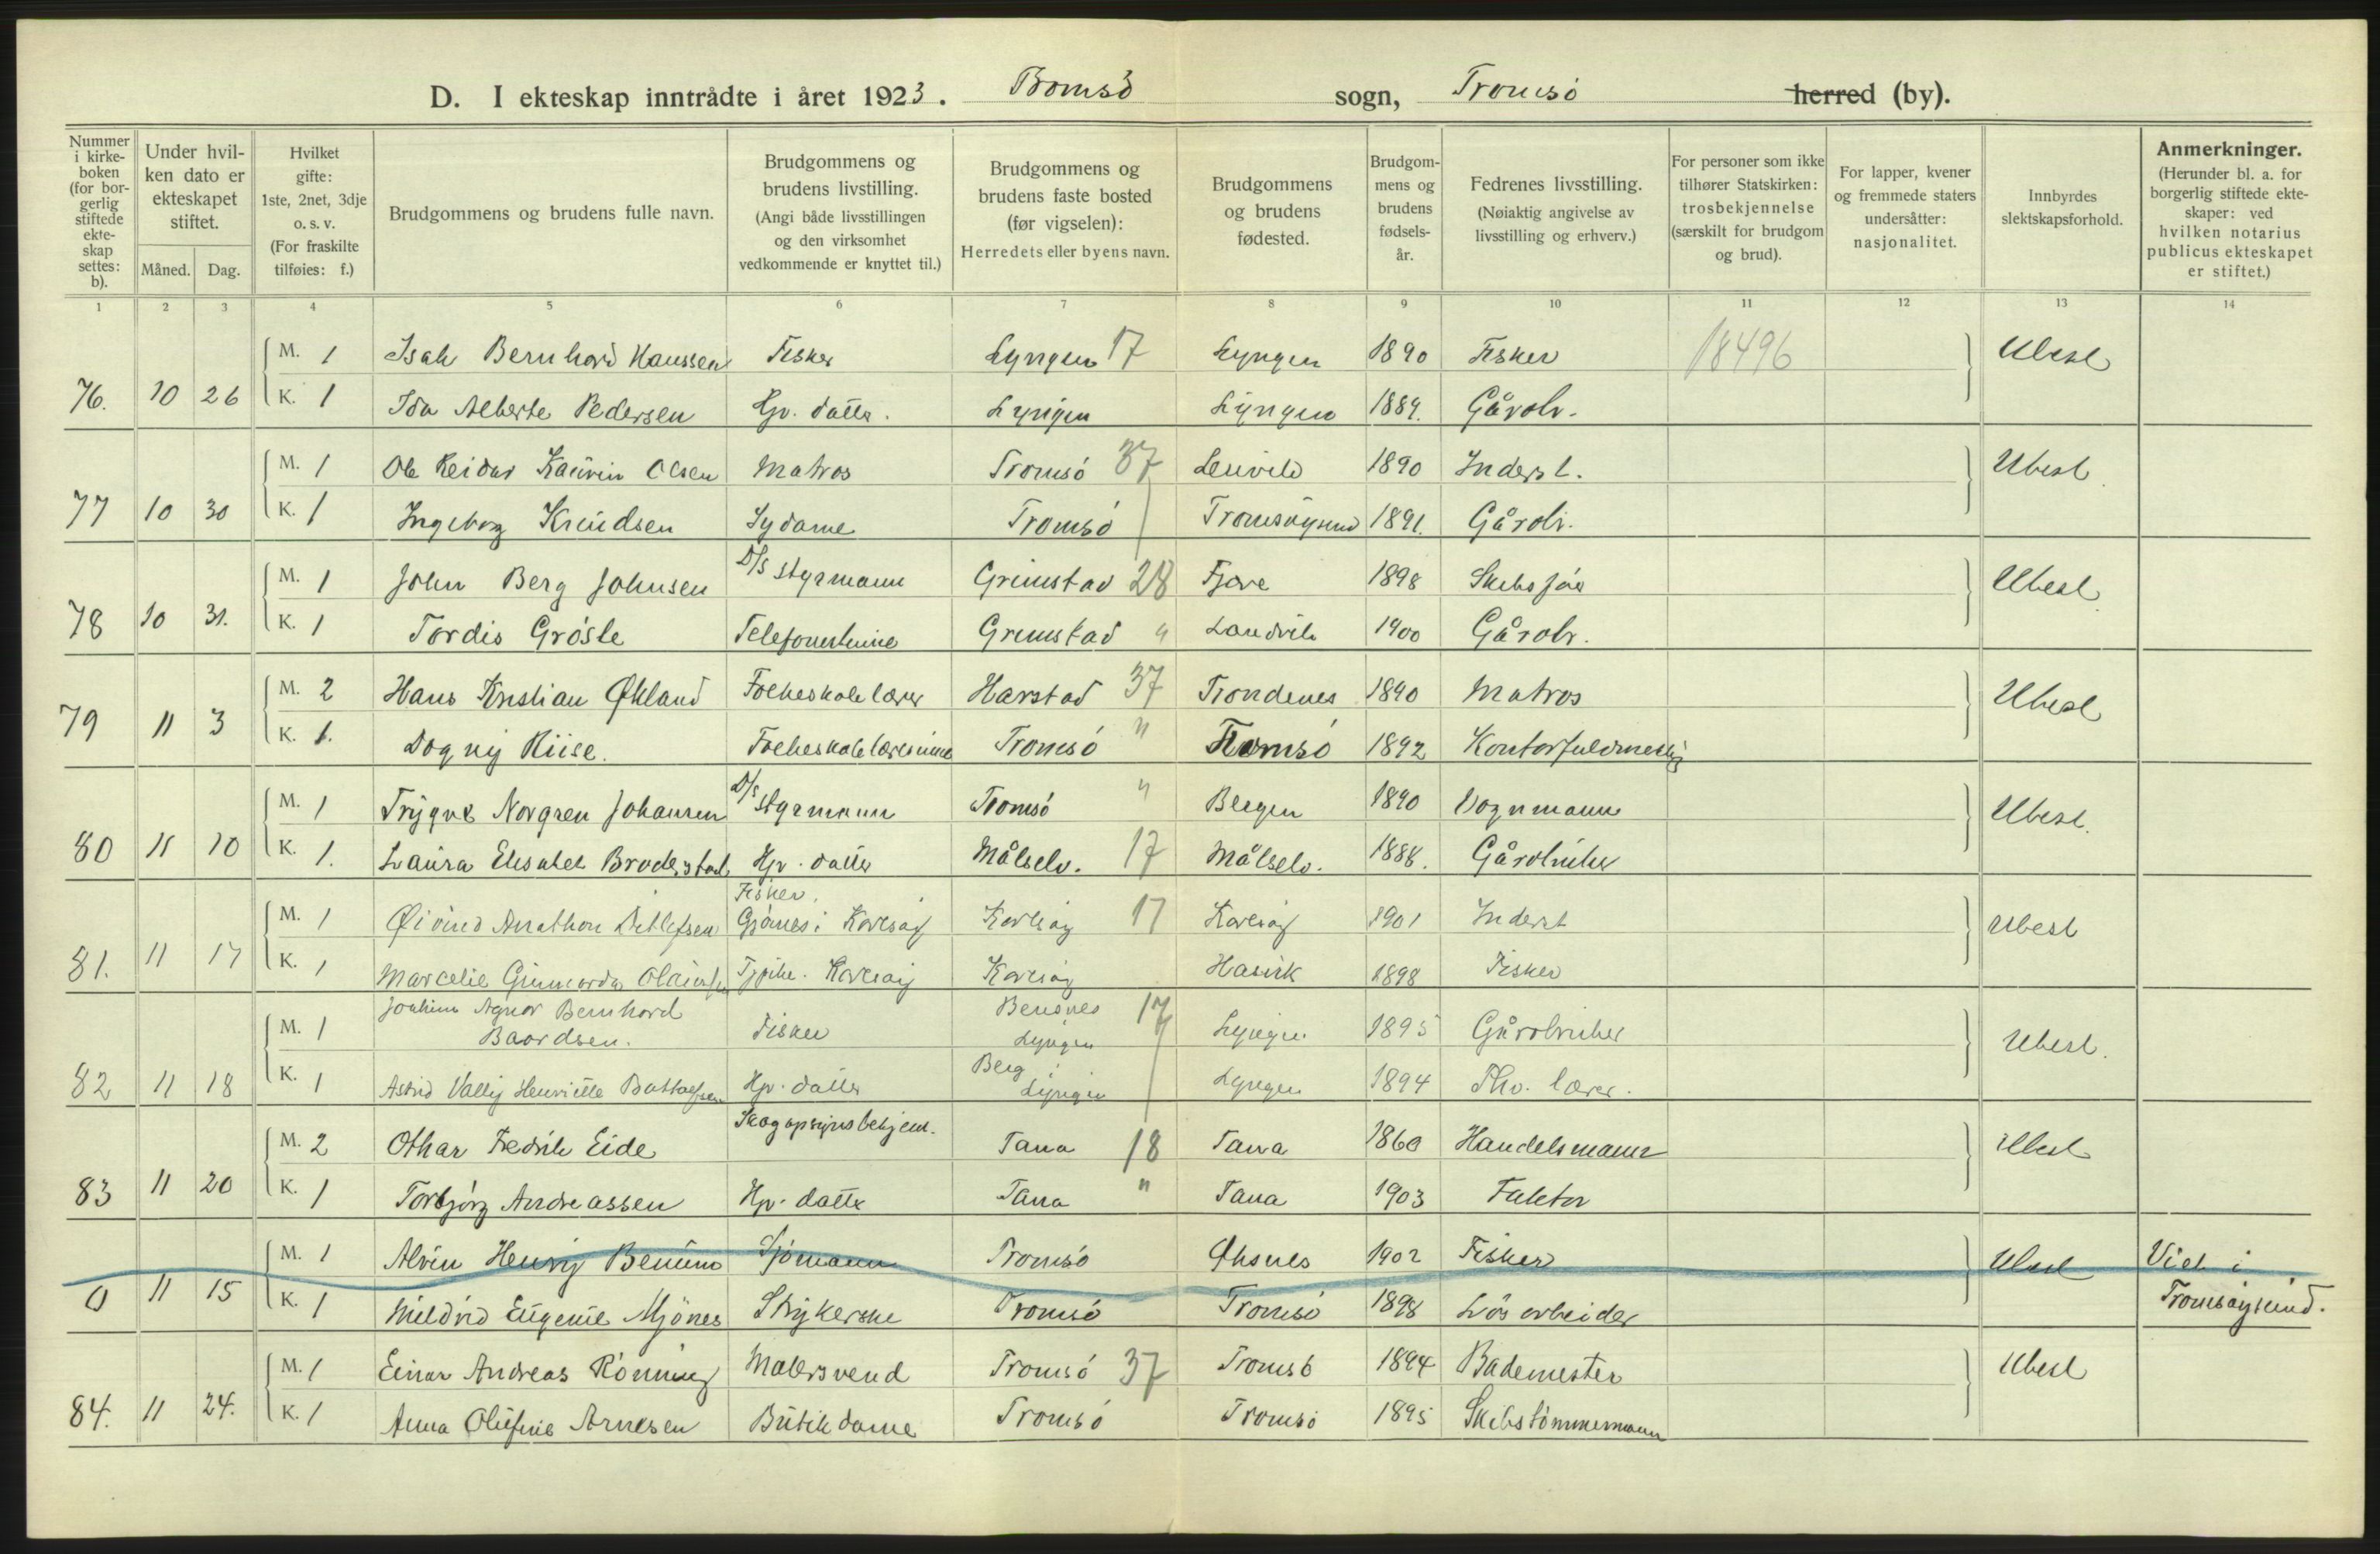 D. I ekteskap inntrådte i året 1923. Tromsö sogn, Tromsö herred (by).
Nummer i kirkeboken (for borgerlig stiftede ekteskap settes: b).
Under hvilken dato er ekteskapet stiftet.
Måned. Dag.
Hvilket gifte: 1ste, 2net, 3dje o. s. v. (For fraskilte tilføies: f.)
Brudgommens og brudens fulle navn.
Brudgommens og brudens livstilling. (Angi både livsstillingen og den virksomhet vedkommende er knyttet til.)
Brudgommens og brudens faste bosted (før vigselen): Herredets eller byens navn.
Brudgommens og brudens fødested.
Brudgommens og brudens fødselsår.
Fedrenes livsstilling. (Nøiaktig angivelse av livsstilling og erhverv.)
For personer som ikke tilhører Statskirken: trosbekjennelse (særskilt for brudgom og brud).
For lapper, kvener og fremmede staters undersåtter: nasjonalitet.
Innbyrdes slektskapsforhold.
Anmerkninger. (Herunder bl. a. for borgerlig stiftede ekteskaper: ved hvilken notarius publicus ekteskapet er stiftet.)
1 2 3 4 5 6 7 8 9 10 11 12 13 14
M. 1 Isak Bernhard Hanssen Fisker Lyngen 17 Lyngen 1890 Fisker 18496 Ubesl
76. 10 26 K. 1 Ida Alberte Pedersen Hjv. datter. Lyngen Lyngen 1889. Gårdbr.
M. 1 Ole Reidar Kaurin Olsen Matros Tromsö 37 1890 Inderst. Ubesl
77 10 30 K. 1 Ingeborg Knudsen Sydame Tromsö Tromsöysund 1891. Gårdbr.
M. 1 John Berg Johnsen D/S styrmann Grimstad 28 Fjære 1898 Ubesl
78 10 31. K. 1 Tordis Grösle Telefonistinne Grimstad " Landvik 1900 Gårdbr.
M. 2 Hans Kristian Økland Folkeskolelærer Harstad 37 Trondenes 1890 Matros Ubesl
79 11 3 K. 1. Dagny Riise. Folkeskolelærerinne Tromsö " Tromsö 1892 Kontorfuldmektig
M. 1 Trygve Norgren Johansen D/S styrmann Tromsö " Bergen 1890 Vognmann Ubesl.
80 11 10 K. 1. Laura Elisabet Broderstad Hjv. datter Målselv. 17 Målselv. 1888. Gårdbruker
Fisker.
M. 1 Øivind Anathon Ditlefsen Gjönes i Karlsöy Karlsöy 17 Karlsöy 1901 Inderst Ubesl
81. 11 17 K. 1 Marcelie Karlsöy Karlsöy 1898 Fisker
Joakim Agnar Bernhard Bensnes 17
M. 1 Baardsen. Fisker Lyngen Lyngen 1895 Gårdbruker Ubesl.
Berg
82 11 18 K. 1 Astrid Vally Henriette Hjv. datter Lyngen Lyngen 1894 Fhv. lærer.
Skogopsynsbetjent.
M. 2 Othar Fredrik Eide Tana 18 Tana 1860 Handelsmann Ubesl
83 11 20 K. 1 Torbjörg Andreassen Hjv. datter Tana " Tana 1903 Faktor
M. 1 Alvin Henry Benum Sjömann Tromsö Øksnes 1902 Fisker Ubesl Viet i
0 11 15 K. 1 Mildrid Eugenie Mjönes Strykerske Tromsö Tromsö 1898 Lösarbeider Tromsöysund.
M. 1 Einar Andreas Rönning Malersvend Tromsö 37 Tromsö 1894 Bademester Ubesl
84. 11 24. K. 1 Anna Olufine Arnesen Butikdame Tromsö Tromsö 1895 Skibstömmermann